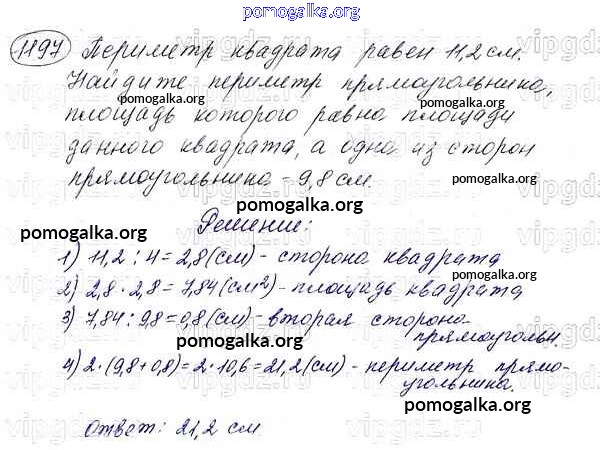 pomogalka.org
1197 Периметр квадрата равен 11,2 см.
Найдите периметр прямоугольника,
pomogalka.org
площадь которого равна площади
данного квадрата, а одна из сторон
прямоугольника - 9,8 см.
pomogalka.org
pomogalka.org
Решение:
pomogalka.org
1) 11,2 : 4 = 2,8 (см) - сторона квадрата
pomogalka.org
2) 2,8 · 2,8 = 7,84 (см²) - площадь квадрата
3) 7,84 : 9,8 = 0,8 (см) - вторая сторона
прямоугольн.
pomogalka.org
4) 2 · (9,8 + 0,8) = 2 · 10,6 = 21,2 (см) - периметр прямо-
угольника.
pomogalka.org
Ответ: 21,2 см
pomogalka.org